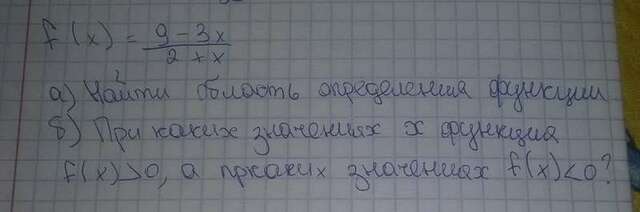 f(x) = 9 - 3x / 2 + x
а) Найти область определения функции
б) При каких значениях х функция
f(x)>0, а пркаких значениях f(x)<0?